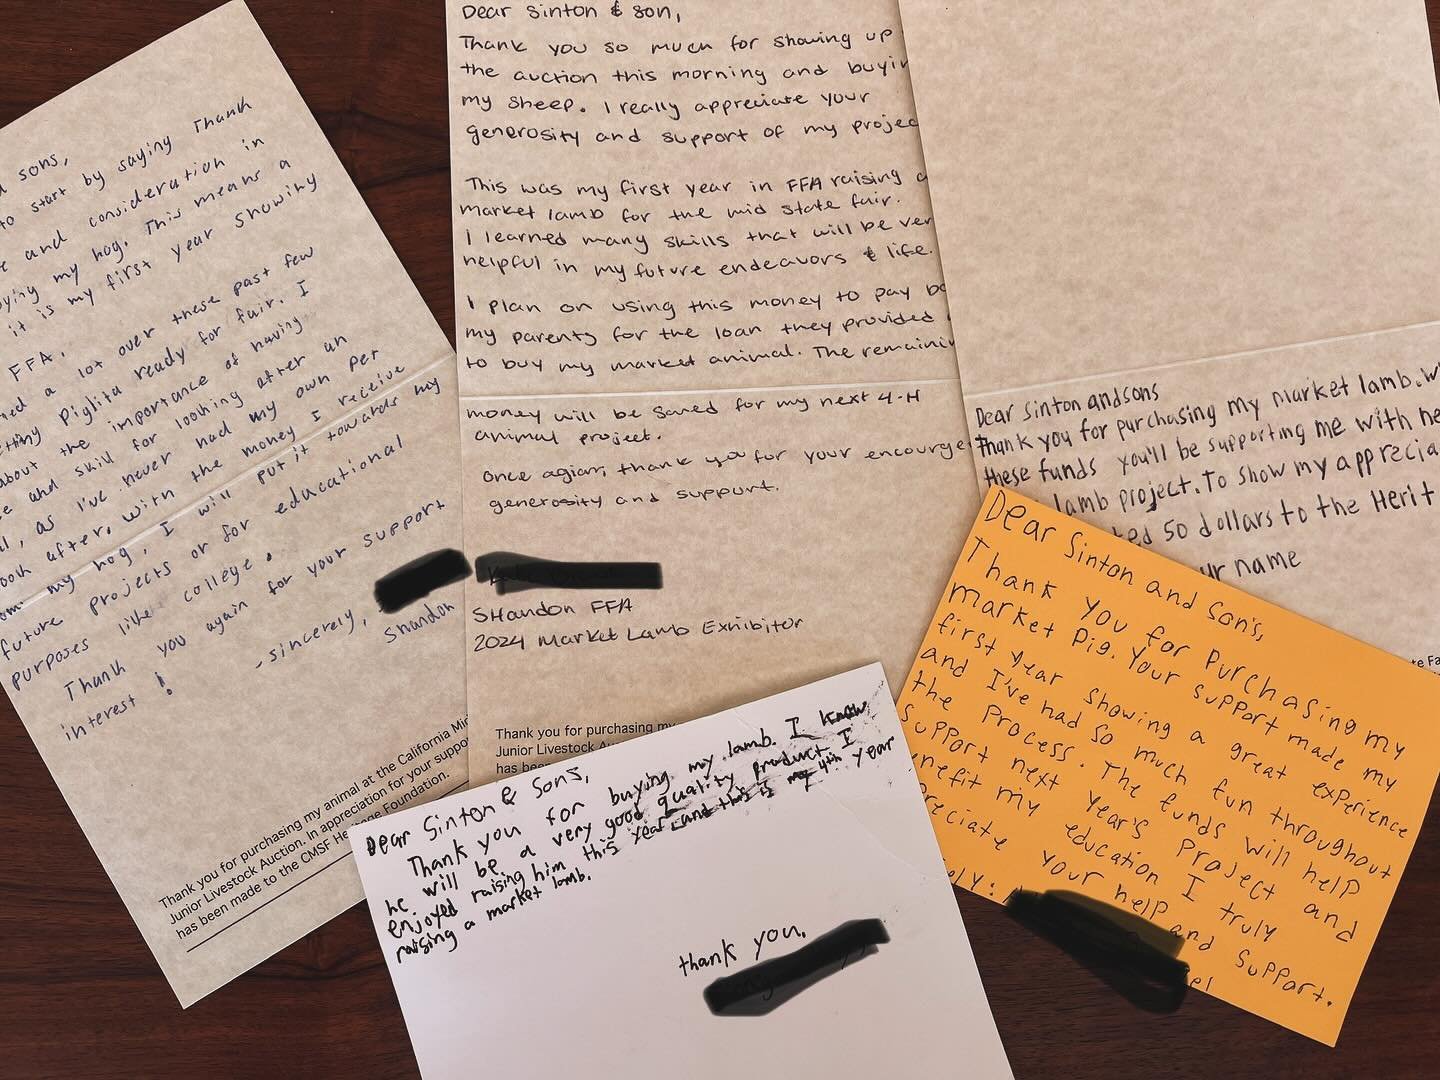 sons,
to start by saying Thank
and consideration in
my hog. This means a
it is my first year showing
FFA.
a lot over these past few
Piglita ready for fair. I
about the importance of having
and skill for looking after an
as I've never had my own per
after. With the money I receive
my hog, I will put it towards my
future projects or for educational
purposes like college.
Thank you again for your support
interest!
- sincerely,
Shandon
Thank you for purchasing my animal at the California Mi
Junior Livestock Auction. In appreciation for your suppo
has been made to the CMSF Her Foundation.
Dear Sinton & son,
Thank you so much for showing up
the auction this morning and buyin
my sheep. I really appreciate your
generosity and support of my projec
This was my first year in FFA raising a
market lamb for the mid state fair.
I learned many skills that will be ver
helpful in my future endeavors & life.
I plan on using this money to pay ba
my parents for the loan they provided
to buy my market animal. The remainin
money will be saved for my next 4-H
animal project.
Once agian, thank you for your encourge
generosity and support.
Shandon FFA
2024 Market Lamb Exhibitor
Thank you for purchasing my
Junior Livestock Au
has been
Dear Sinton andsons
Thank you for purchasing my market lamb. W
these funds you'll be supporting me with ne
lamb project. To show my apprecia
ted 50 dollars to the Herit
ur name
te Fa
Dear Sinton and Son's,
Thank you for Purchasing my
market Pig. Your support made my
first year showing a great experience
and I've had so much fun throughout
the Process. The funds will help
support next year's Project and
enefit my education I truly
preciate your help and support.
ely:
el
Dear Sinton & Sons,
Thank you for buying my lamb. I know
he will be a very good quality product I
enjoyed raising him this year and this is my 4th year
raising a market lamb.
thank you,